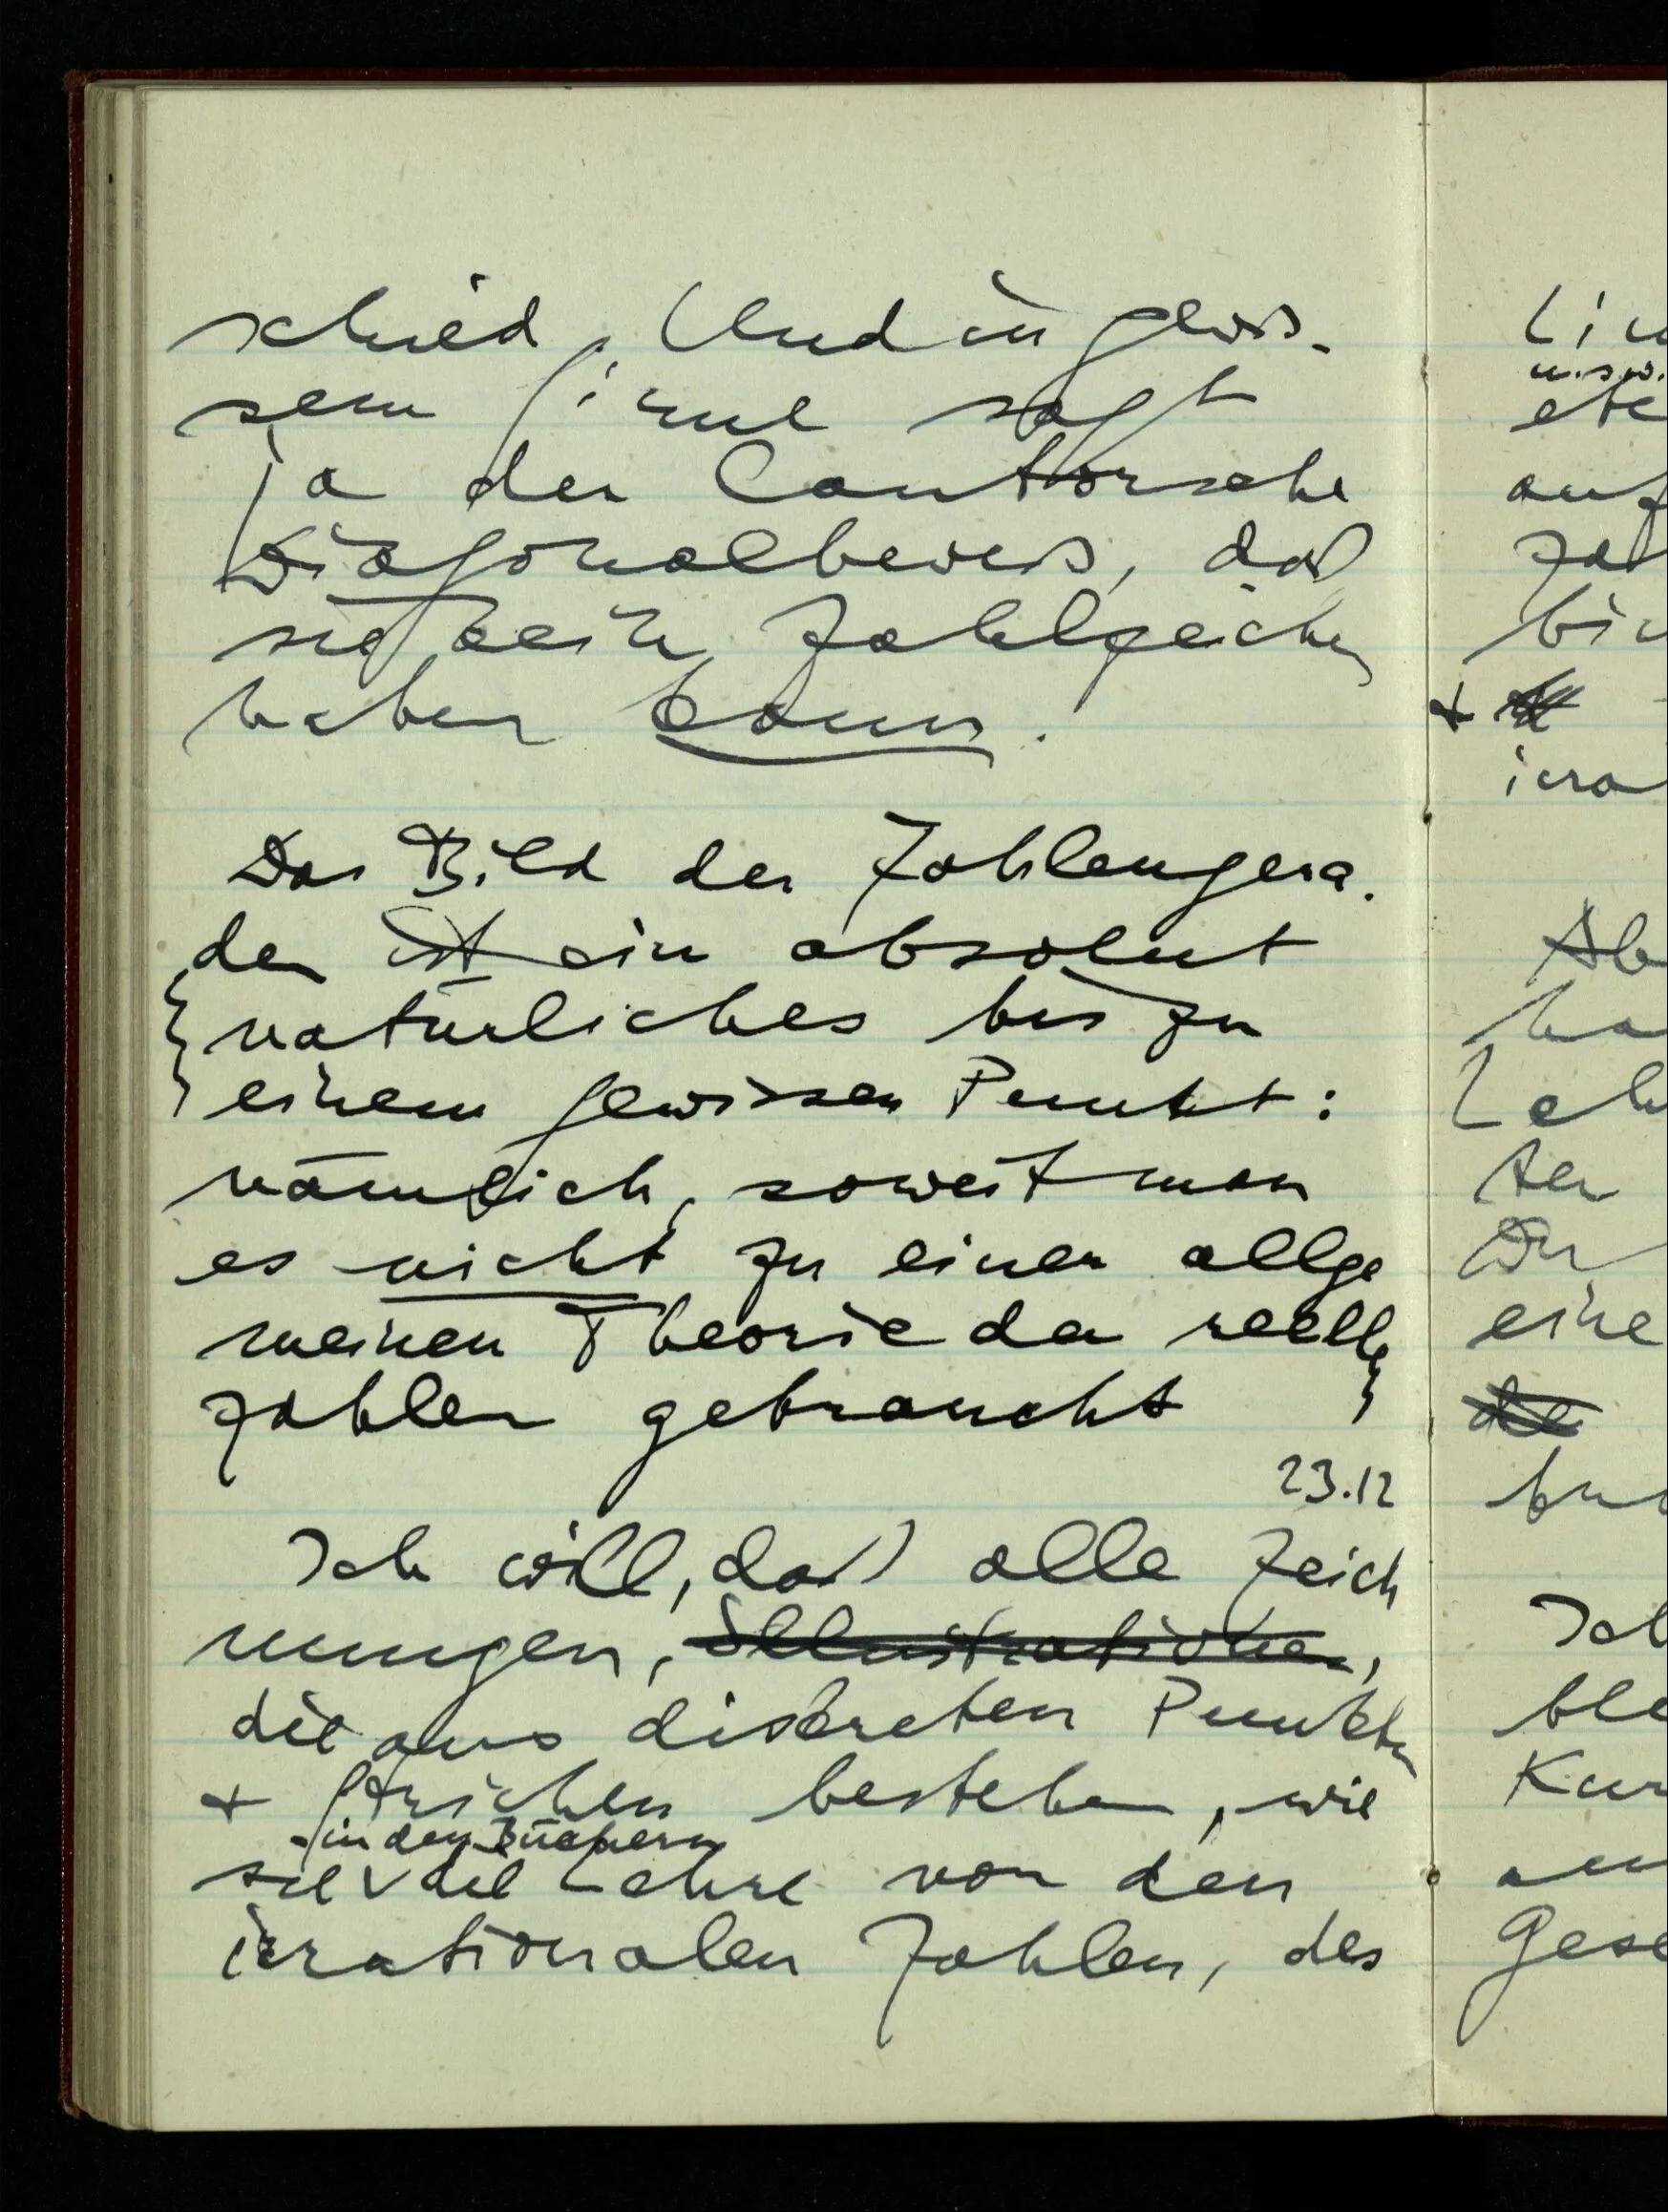 schied. Und in gewis-
sem Sinne sagt
ja der Cantorsche
Diagonalbeweis, daß
sie kein Zahlzeichen
haben kann.
Das Bild der Zahlengera-
den ist ein absolut
natürliches bis zu
einem gewissen Punkt:
nämlich, soweit man
es nicht zu einer allge
meinen Theorie der reellen
Zahlen gebraucht
23.12
Ich will, daß alle Zeich
nungen, Illustrationen,
die aus diskreten Punkten
+ Strichen bestehen, wie
in den Büchern
sie die Lehre von den
irrationalen Zahlen, des
u.s.w.
etc
+
eine